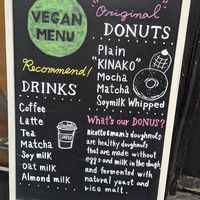 VEGAN
MENU
Recommend!
DRINKS
Coffee
Latte
Tea
Matcha
Soy milk
Oat milk
Almond milk
"Original"
DONUTS
Plain
"KINAKO"
Mocha
Matcha
Soymilk Whipped
What's our DONUS?
nicotto & mam's doughnuts
are healthy doughnuts
that are made without
egg and milk in the dough
and fermented with
natural yeast and
rice malt.